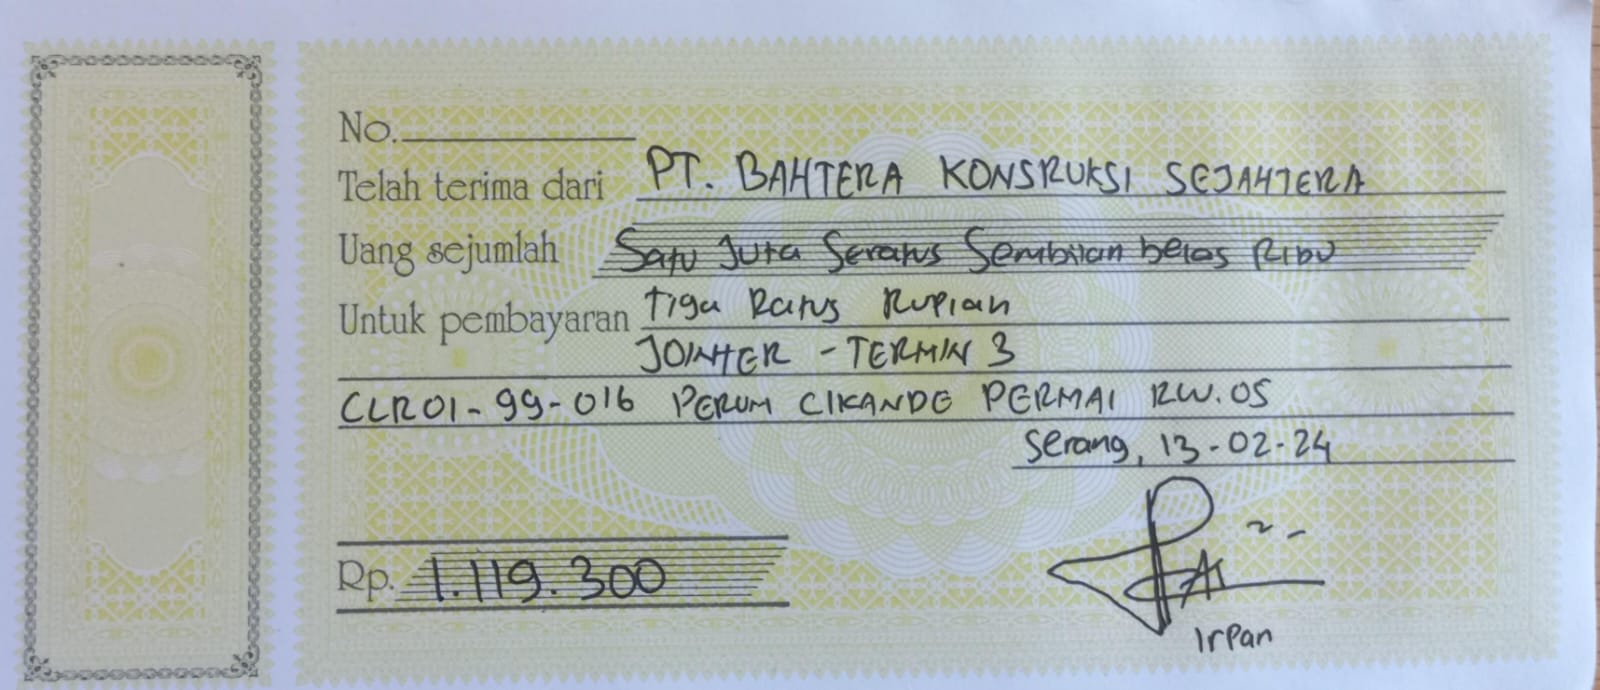 No.
Telah terima dari PT. BAHTERA KONSRUKSI SEJAHTERA
Uang sejumlah Satu Juta Seratus Sembilan belas Ribu
Untuk pembayaran Tiga Ratus Rupiah
JOINTER - TERMIN 3
CLR01-99-016 PERUM CIKANDE PERMAI RW.05
Serang, 13-02-24
Rp. 1.119.300
Irpan